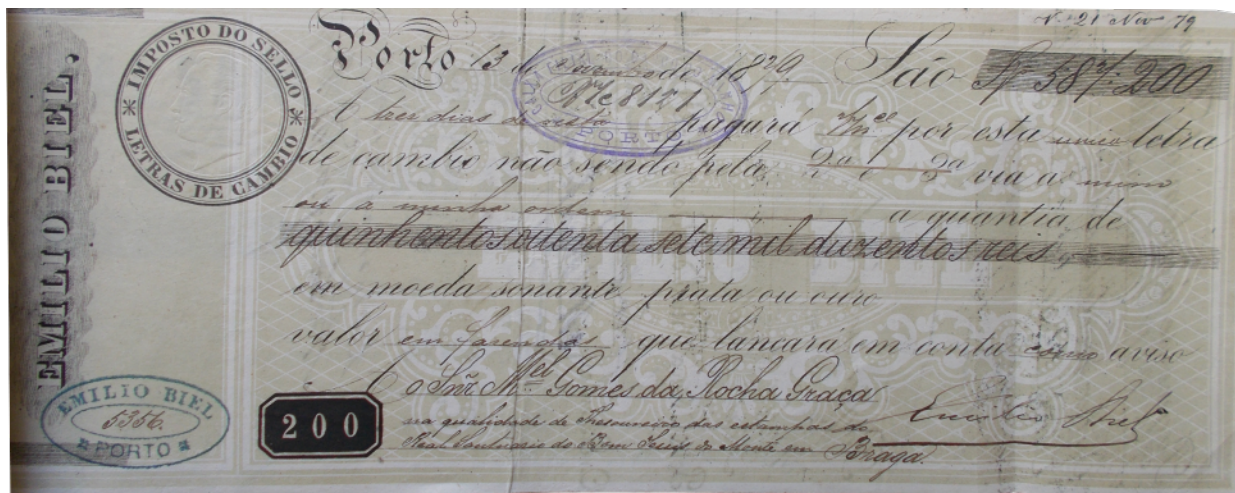 V. 21 Nov 79
EMILIO BIEL.
IMPOSTO DO SELLO
LETRAS DE CAMBIO
Porto 13 de Novembro de 1879. São R$ 587:200
Nº 8121
PORTO
A tres dias de vista pagará V.M.ce por esta unica letra
de cambio não sendo pela 2ª e 3ª via a mim
ou á minha ordem a quantia de
quinhentos oitenta sete mil duzentos reis
em moeda sonante prata ou ouro
valor em fazendas que lancará em conta como aviso
o Snr. M.el Gomes da Rocha Graça
na qualidade de Thesoureiro das estampas do
Real Santuario do Bom Jesus do Monte em Braga.
Emilio Biel
200
EMILIO BIEL
5356.
PORTO
EMILIO BIEL